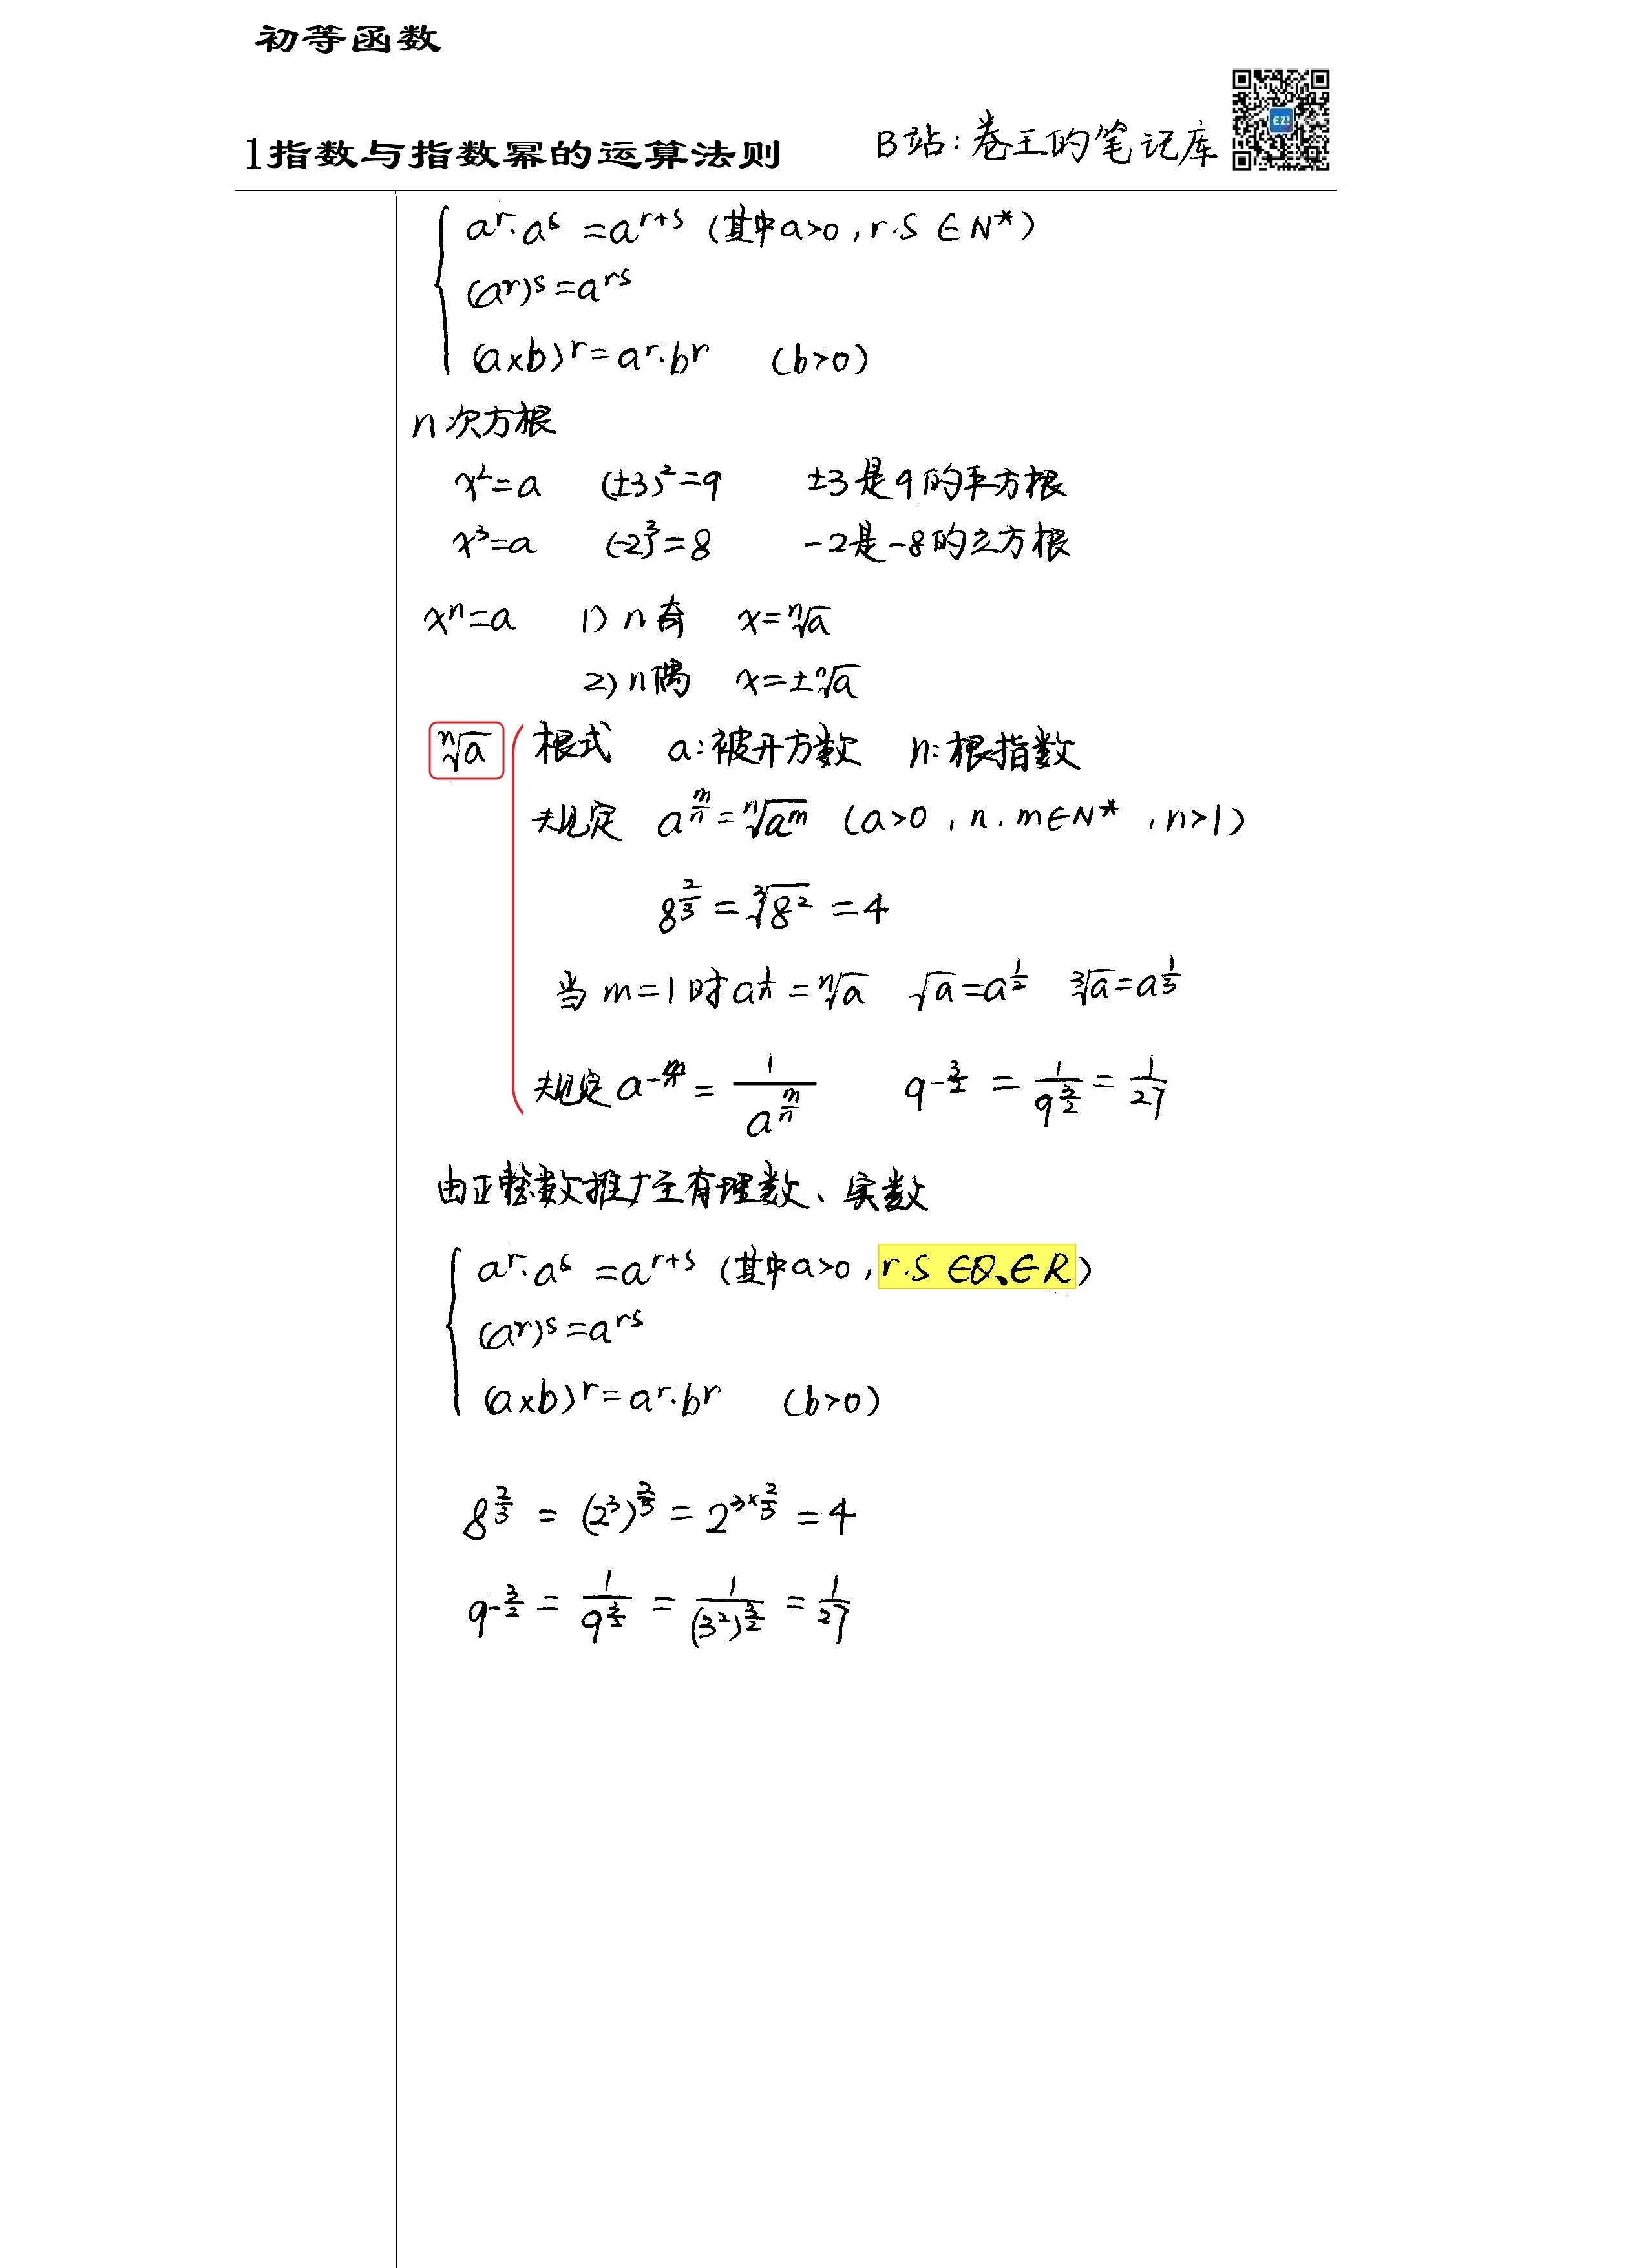 初等函数
1指数与指数幂的运算法则
B站:卷王的笔记库
EZ!
aʳ·aˢ =aʳ⁺ˢ (其中a>0,r.s ∈N*)
(aʳ)ˢ=aʳˢ
(a×b)ʳ=aʳ·bʳ (b>0)
n次方根
x²=a (±3)²=9 ±3是9的平方根
x³=a (-2)³=8 -2是-8的立方根
xⁿ=a 1) n奇 x=ⁿ√a
2) n偶 x=±ⁿ√a
ⁿ√a 根式 a:被开方数 n:根指数
规定 a^(m/n)=ⁿ√(a^m) (a>0,n.m∈N*,n>1)
8^(2/3)=³√(8²)=4
当m=1时a^(1/n)=ⁿ√a √a=a^(1/2) ³√a=a^(1/3)
规定a^(-m/n)=1/a^(m/n) 9^(-3/2)=1/9^(3/2)=1/27
由正整数推广至有理数、实数
aʳ·aˢ =aʳ⁺ˢ (其中a>0,r.s ∈Q、∈R)
(aʳ)ˢ=aʳˢ
(a×b)ʳ=aʳ·bʳ (b>0)
8^(2/3)=(2³)^(2/3)=2^(3×2/3)=4
9^(-3/2)=1/9^(3/2)=1/(3²)^(3/2)=1/27